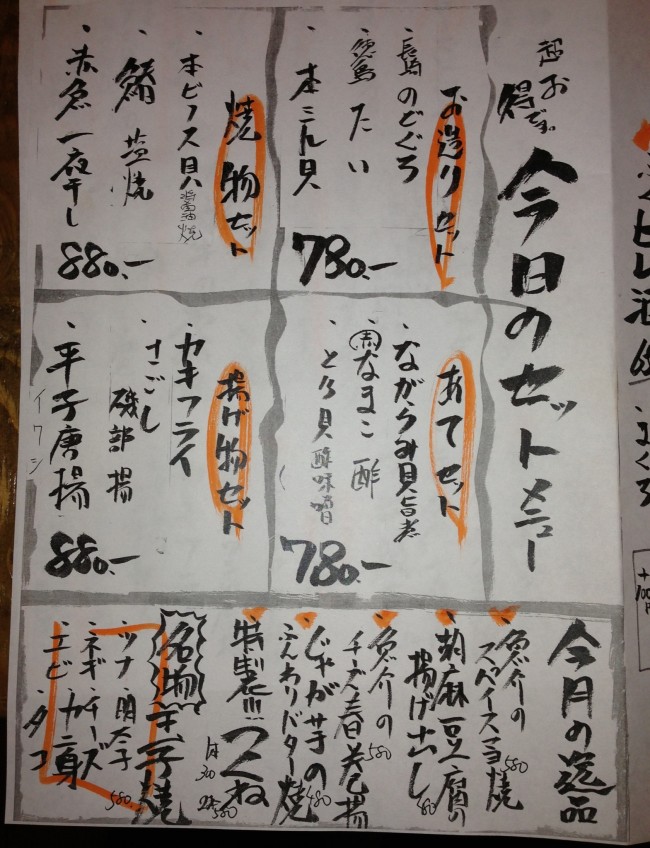 超お得です。
今日のセットメニュー
お造りセット
・長崎のどぐろ
・徳島たい
・本ミル貝
780.-
焼物セット
・本ビノス貝醤油焼
・鰆塩焼
・赤魚一夜干し
880.-
あてセット
・ながらみ貝旨煮
・なまこ酢
・とり貝酢味噌
780.-
揚げ物セット
・カキフライ
・さごし磯部揚
・平子唐揚
イワシ
880.-
今月の逸品
魚介の
スパイス玉焼
580
胡麻豆腐の
揚げ出し
480
魚介の
チーズ春巻揚
580
じゃが芋の
ふんわりバター焼
480
特製!!つくね
580
名物 玉子焼
580
・ツナ・明太子
・ネギ・チーズ
・エビ・カニ身
・タコ
ヒレ酒
まぐろ
+100円